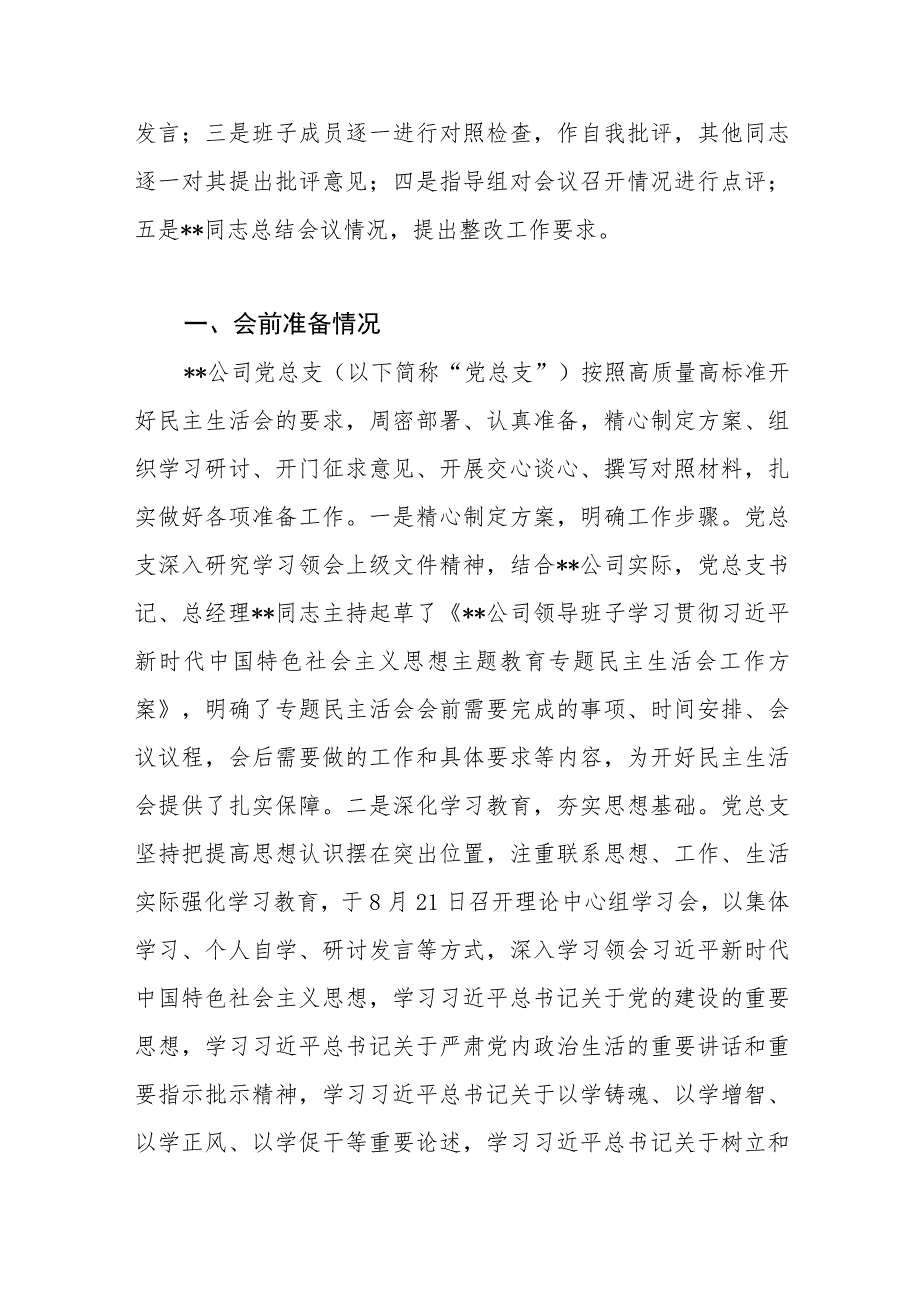 发言；三是班子成员逐一进行对照检查，作自我批评，其他同志
逐一对其提出批评意见；四是指导组对会议召开情况进行点评；
五是**同志总结会议情况，提出整改工作要求。
一、会前准备情况
**公司党总支（以下简称“党总支”）按照高质量高标准开
好民主生活会的要求，周密部署、认真准备，精心制定方案、组
织学习研讨、开门征求意见、开展交心谈心、撰写对照材料，扎
实做好各项准备工作。一是精心制定方案，明确工作步骤。党总
支深入研究学习领会上级文件精神，结合**公司实际，党总支书
记、总经理**同志主持起草了《**公司领导班子学习贯彻习近平
新时代中国特色社会主义思想主题教育专题民主生活会工作方
案》，明确了专题民主活会会前需要完成的事项、时间安排、会
议议程，会后需要做的工作和具体要求等内容，为开好民主生活
会提供了扎实保障。二是深化学习教育，夯实思想基础。党总支
坚持把提高思想认识摆在突出位置，注重联系思想、工作、生活
实际强化学习教育，于8月21日召开理论中心组学习会，以集体
学习、个人自学、研讨发言等方式，深入学习领会习近平新时代
中国特色社会主义思想，学习习近平总书记关于党的建设的重要
思想，学习习近平总书记关于严肃党内政治生活的重要讲话和重
要指示批示精神，学习习近平总书记关于以学铸魂、以学增智、
以学正风、以学促干等重要论述，学习习近平总书记关于树立和